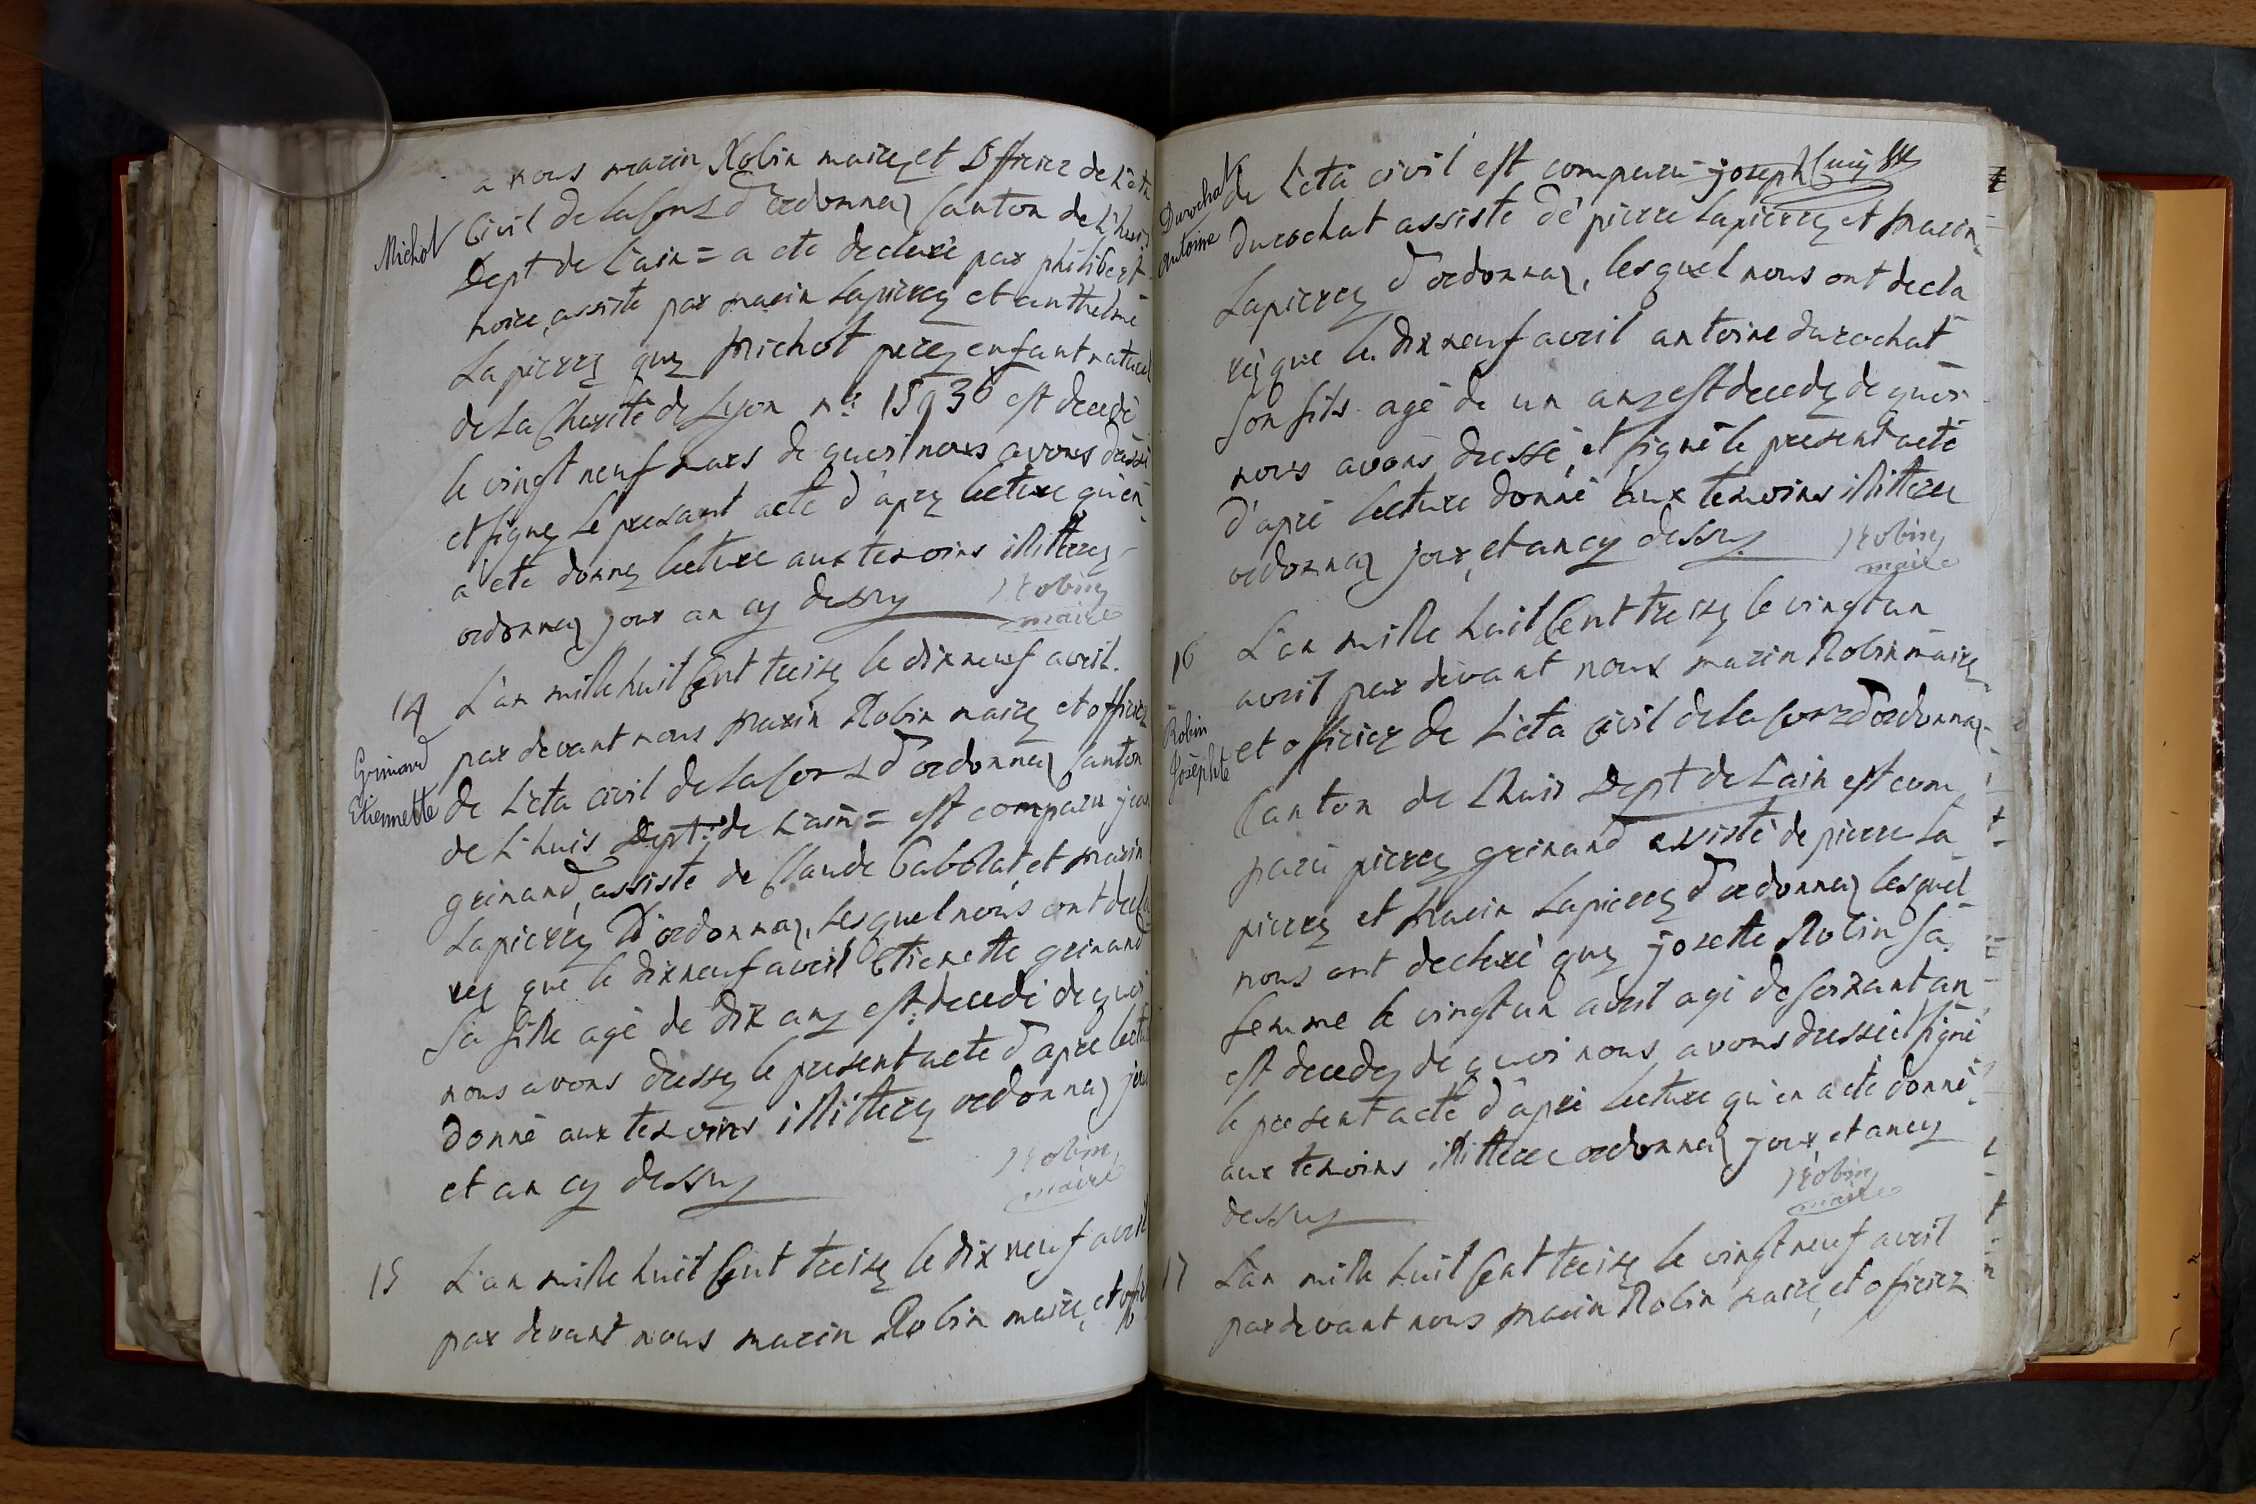 a nous marin Robin mairez et officier de L'eta
Michol
Civil de la Com d'ordonnaz Canton de L'huis
Dept de L'ain = a ete declaré par philibert
noire, assisté par marin Lapierrez et anthelme
Lapierrez quez Michot perez enfant naturel
de La Charité de Lyon n° est decedé
le vingt neuf mars de quoi nous avons dressé
et signez Le presant acte d'aprez lecture qu'en
a ete donnez lecture aux temoins illitterez
ordonnaz jour an cy dessuz
Robin
maire
14
L'an mille huit Cent treize le dix neuf avril.
par devant nous marin Robin mairez et officier
Grinand
Etiennette
de L'eta civil de la Com d'ordonnaz Canton
de L'huis Dept: de L'ain = est comparu jean
grinand, assisté de Claude Cabolat et marin
Lapierrez D'ordonnaz, Lesquel nous ont decla
rez que le dix neuf avril Etienette grinand
sa fille agé de dix anz est decedé de quoi
nous avons dressez le present acte d'apre lectu
donné aux temoins illitterez ordonnaz jour
et an cy dessuz
Robin
maire
15
L'an mille huit Cent treize le dix neuf avril
par devant nous marin Robin maire, et offic
Durochat
Antoine
de L'eta civil est comparu joseph
durochat assisté de pierre Lapierrez et marin
Lapierrez d'ordonnaz, lesquel nous ont decla
rez que le dix neuf avril antoine durochat
son fils agé de un anz est decedez de quoi
nous avons dressé, et signé le present acte
d'apré lecture donné aux temoins illitteree
ordonnaz jour, et an cy dessuz
Robin
maire
16
L'an mille huit Cent treize le vingt un
avril par devant nous marin Robin mairez
Robin
Josephte
et officier de L'eta civil de la Com d'ordonnaz
Canton de Lhuis Dept de L'ain est com
paru pierrez grinand assisté de pierre La
pierrez et marin Lapierrez d'ordonnaz lesquel
nous ont declaré quez josette Robin sa
femme le vingt un avril agé de soixant an
est decedez de quoi nous avons dressé et signé
le present acte d'apré lecture qu'en a ete donné
aux temoins illitteree ordonnaz jour, et an cy
dessuz
Robin
maire
17
L'an mille huit Cent treize le vingt neuf avril
par devant nous marin Robin maire, et officier